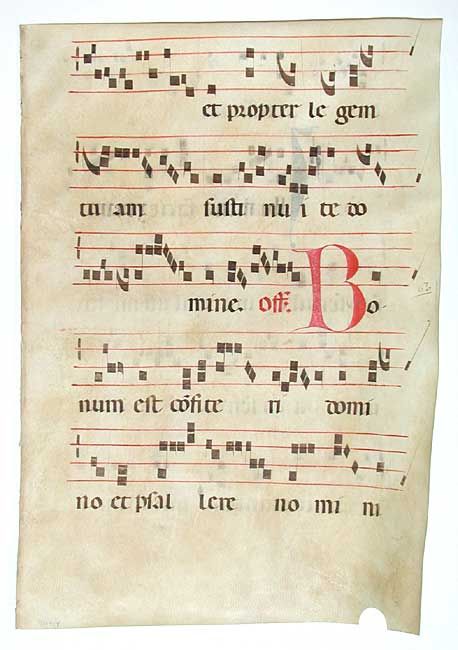 et propter le gem
tuam susti nu i te do
mine. off. Bo
num est cōfite ri domi
no et psal lere no mi ni